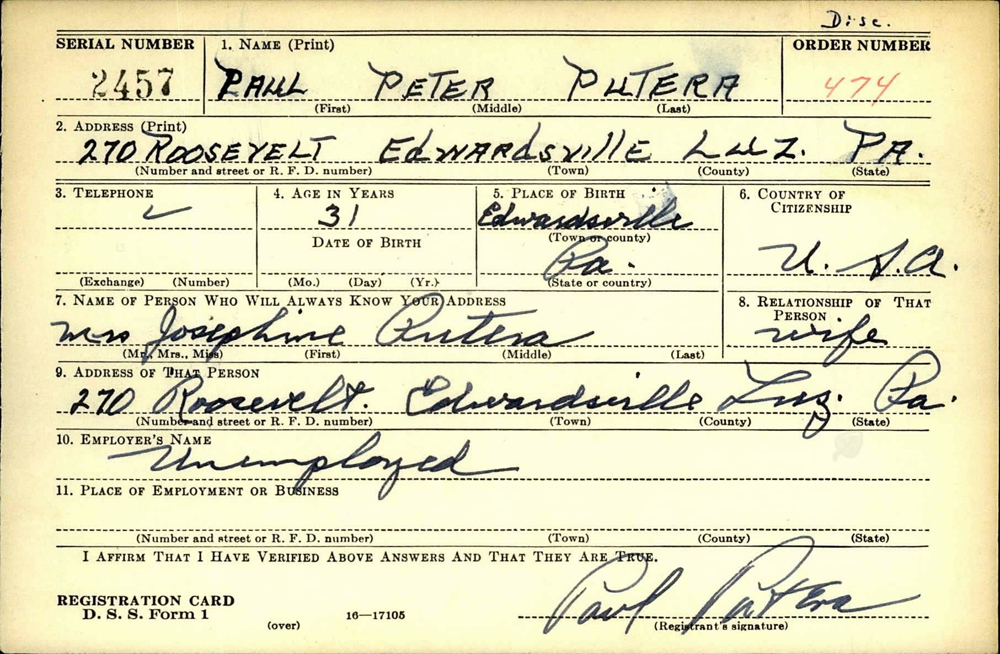 Disc.
SERIAL NUMBER 1. NAME (Print) ORDER NUMBER
2457 PAUL PETER PUTERA 474
(First) (Middle) (Last)
2. ADDRESS (Print)
270 ROOSEVELT EDWARDSVILLE LUZ. PA.
(Number and street or R. F. D. number) (Town) (County) (State)
3. TELEPHONE 4. AGE IN YEARS 5. PLACE OF BIRTH 6. COUNTRY OF CITIZENSHIP
31 Edwardsville
DATE OF BIRTH (Town or county)
Pa. U. S. A.
(Exchange) (Number) (Mo.) (Day) (Yr.) (State or country)
7. NAME OF PERSON WHO WILL ALWAYS KNOW YOUR ADDRESS 8. RELATIONSHIP OF THAT PERSON
Mrs Josephine Putera wife
(Mr., Mrs., Miss) (First) (Middle) (Last)
9. ADDRESS OF THAT PERSON
270 Roosevelt. Edwardsville Luz. Pa.
(Number and street or R. F. D. number) (Town) (County) (State)
10. EMPLOYER'S NAME
Unemployed
11. PLACE OF EMPLOYMENT OR BUSINESS
(Number and street or R. F. D. number) (Town) (County) (State)
I AFFIRM THAT I HAVE VERIFIED ABOVE ANSWERS AND THAT THEY ARE TRUE.
REGISTRATION CARD
D. S. S. Form 1 16—17105 Paul Putera
(over) (Registrant's signature)